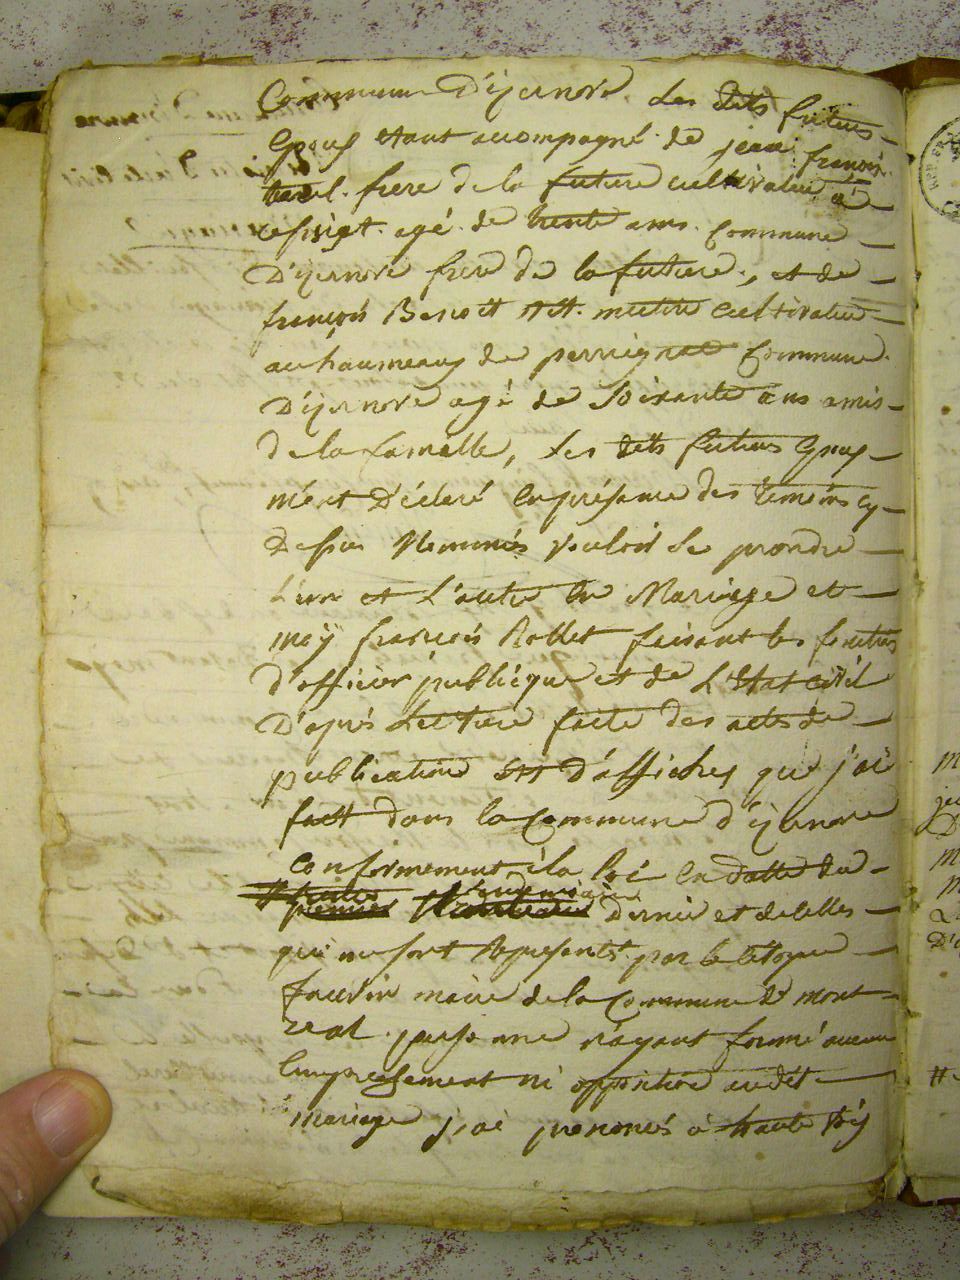 Commune D'izernore, Les dits futurs
Epoux etant accompagné de jean françois
frere de la future cultivateur à
agé de trente ans commune
D'izernore frere de la future, et de
françois Benoit cultivateur
au haumeaux de perrignat Commune
D'izernore agé de Soixante ans amis
de la famille, Les dits futurs Epoux
m'ont Déclaré En présence des temoins cy
Dessus Nommés vouloir Se prendre
L'un et L'autre En Mariage et
moÿ françois Rollet faisant les fonctions
D'officier publicque et de L'Etat civil
D'aprés Lecture faite des acts de
publication et d'affiches que j'ai
fait dans la Commune d'izernore
Conformement à la loi En datte du
premier dernier et de celles
qui me sont représentés par le citoyen
maire de la Commune de Mont
real personne n'ayant formé aucun
Empechement ni opposition audit
mariage j'ai prononcés à haute voÿ